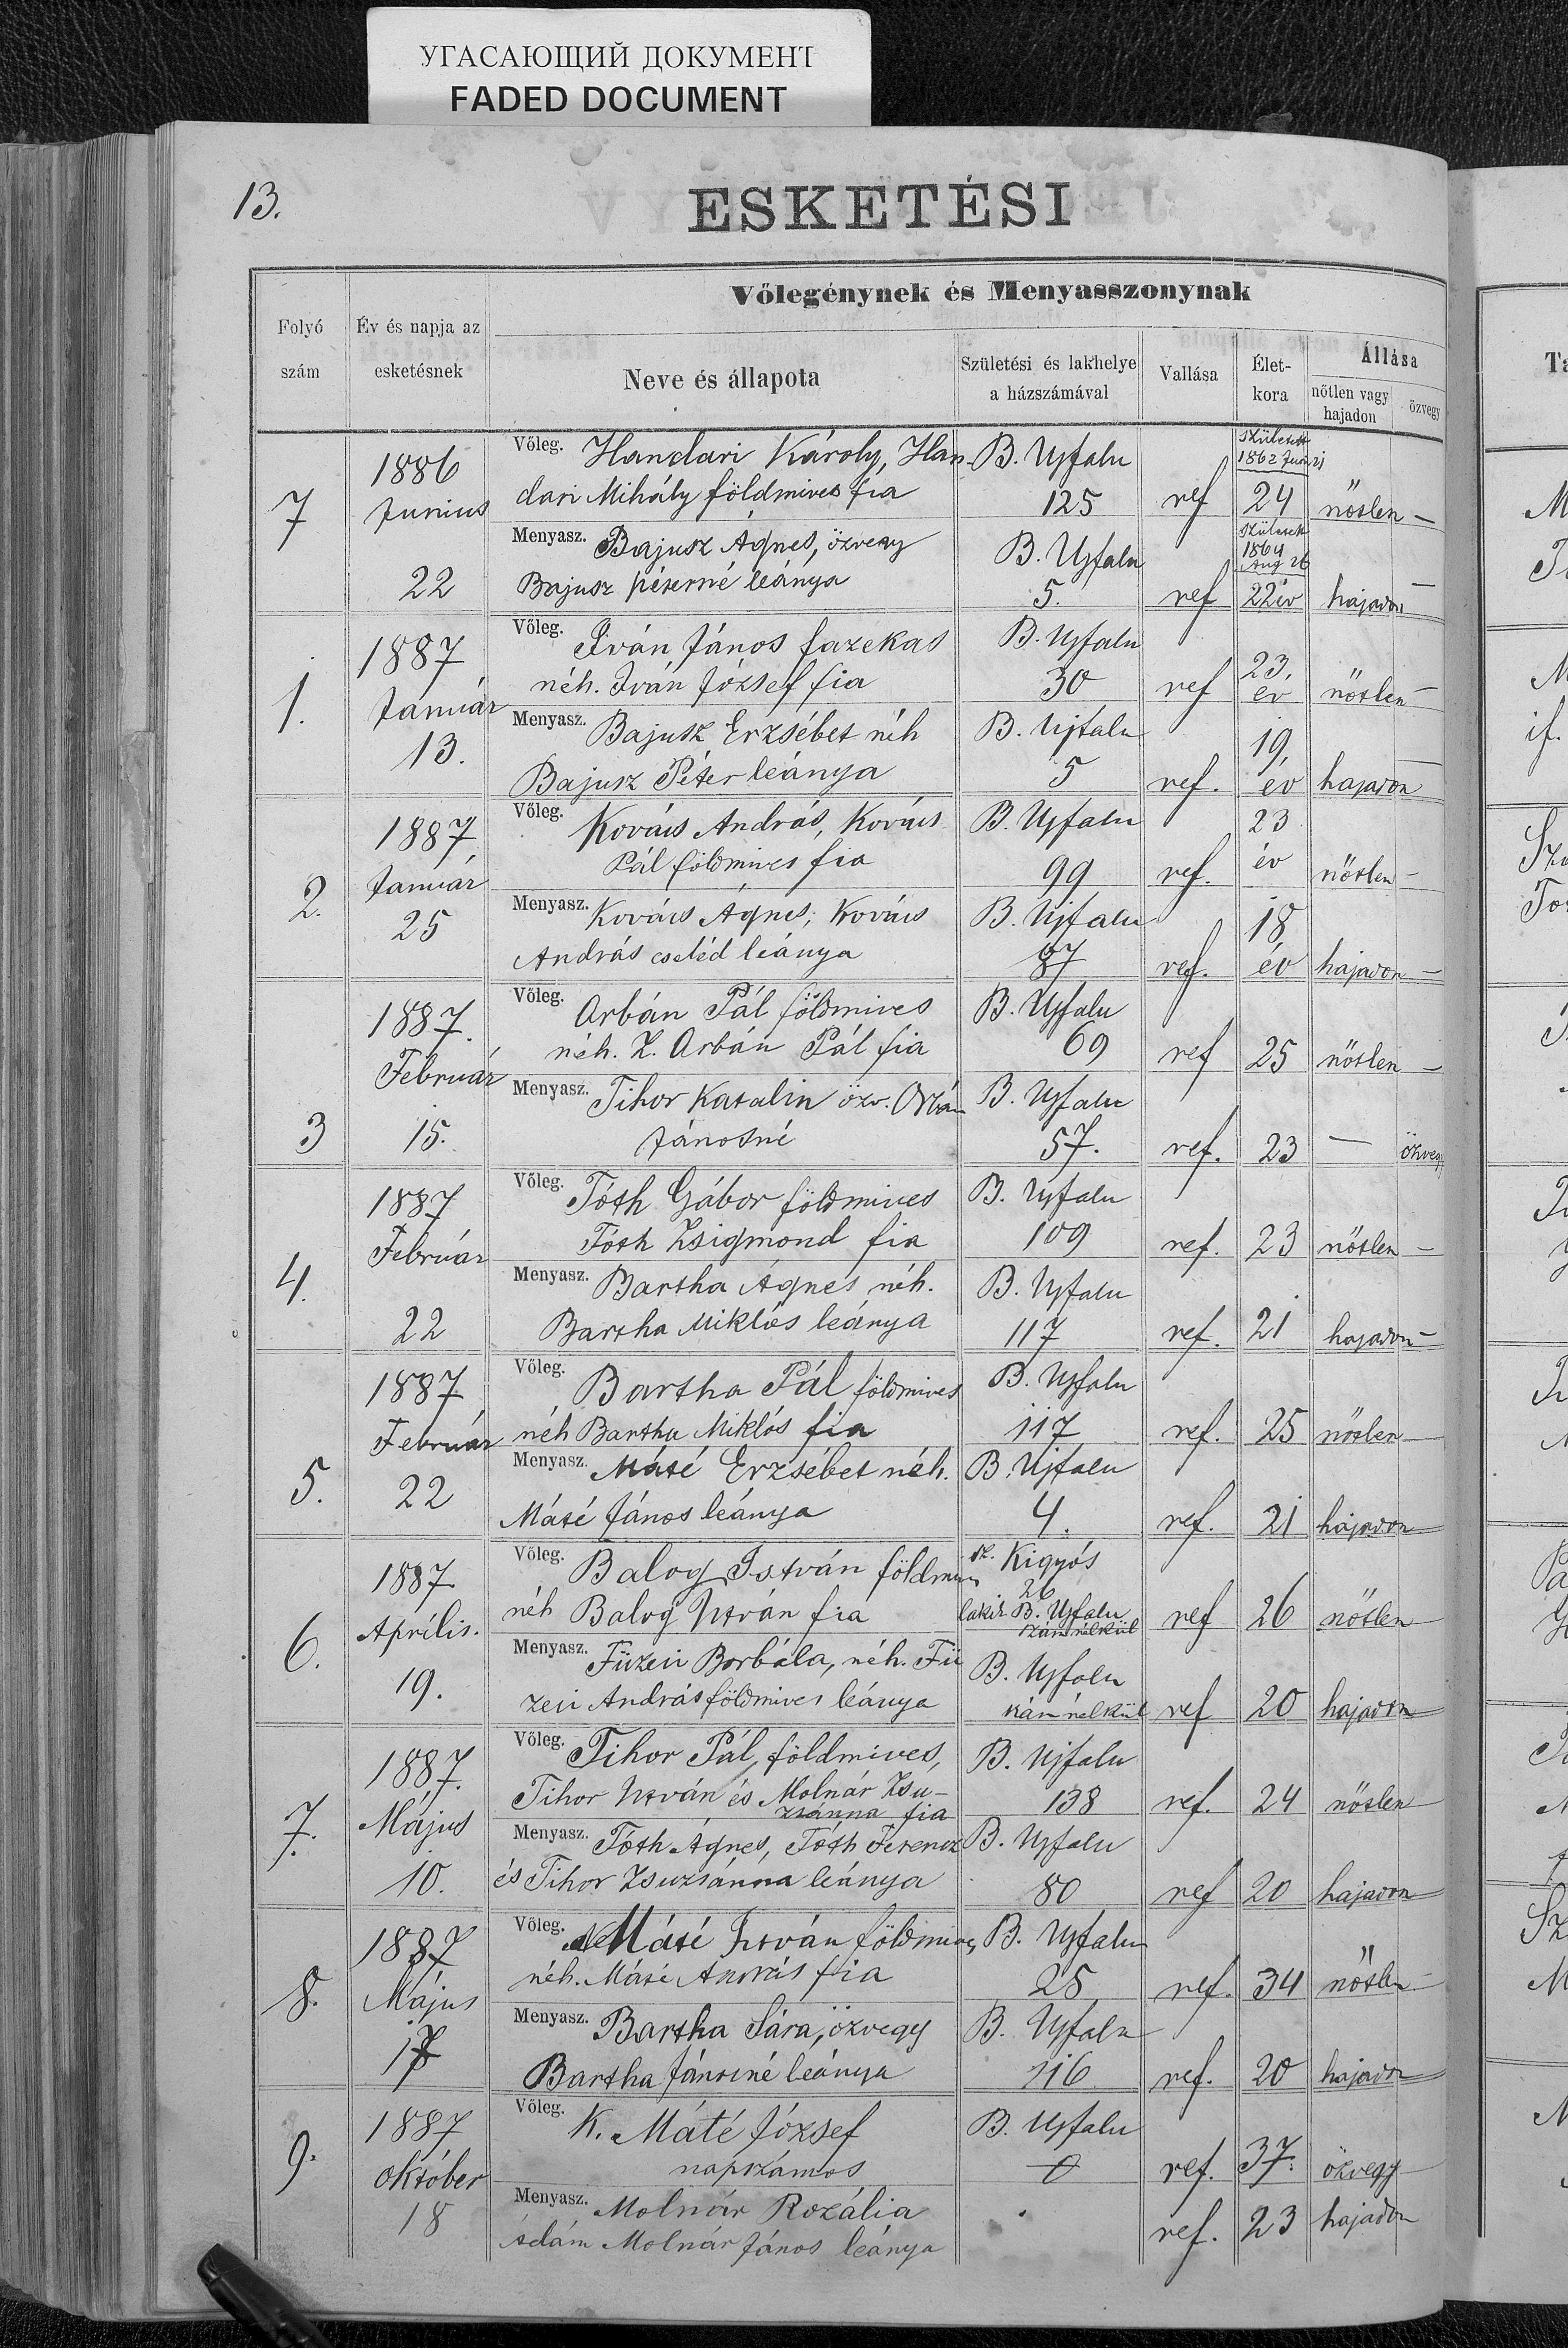 УГАСАЮЩИЙ ДОКУМЕНТ
FADED DOCUMENT
13.
ESKETÉSI
Folyó szám
Év és napja az esketésnek
Vőlegénynek és Menyasszonynak
Neve és állapota
Születési és lakhelye a házszámával
Vallása
Élet-kora
Állása
nőtlen vagy hajadon
özvegy
7
1886 Junius 22
Vőleg. Handari Károly, Han-
dari Mihály földmives fia
B. Ujfalu 125
ref
Született 1862 Juni 21
24
nőtlen –
Menyasz. Bajusz Ágnes, özvegy
Bajusz péterné leánya
B. Ujfalu 5.
ref
Született 1864 Aug 26
22 év
hajadon –
1.
1887 Január 13.
Vőleg. Iván János fazekas
néh. Iván József fia
B. Ujfalu 30
ref
23, év
nőtlen –
Menyasz. Bajusz Erzsébet néh
Bajusz Péter leánya
B. Ujfalu 5
ref.
19, év
hajadon –
2.
1887 Január 25
Vőleg. Kovács András, Kovács
Pál földmives fia
B. Ujfalu 99
ref.
23 év
nőtlen –
Menyasz. Kovács Ágnes, Kovács
András cseléd leánya
B. Ujfalu 87
ref.
18 év
hajadon –
3
1887. Február 15.
Vőleg. Orbán Pál földmives
néh. Z. Orbán Pál fia
B. Ujfalu 69
ref
25
nőtlen –
Menyasz. Tihor Katalin özv. Orbán
Jánosné
B. Ujfalu 57.
ref.
23
–
özvegy
4.
1887 Február 22
Vőleg. Tóth Gábor földmives
Tóth Zsigmond fia
B. Ujfalu 109
ref.
23
nőtlen –
Menyasz. Bartha Ágnes néh.
Bartha Miklós leánya
B. Ujfalu 117
ref.
21
hajadon –
5.
1887 Február 22
Vőleg. Bartha Pál földmives
néh Bartha Miklós fia
B. Ujfalu 117
ref.
25
nőtlen –
Menyasz. Máté Erzsébet néh.
Máté János leánya
B. Ujfalu 4.
ref.
21
hajadon
6.
1887 Aprilis. 19.
Vőleg. Balog István földmives
néh Balog István fia
sz. Kigyós 26
lakik B. Ujfalu
szám nélkül
ref
26
nőtlen
Menyasz. Füzesi Borbála, néh. Fü
zesi András földmives leánya
B. Ujfalu
szám nélkül
ref
20
hajadon
7.
1887. Május 10.
Vőleg. Tihor Pál, földmives,
Tihor István és Molnár Zsu-
zsánna fia
B. Ujfalu 138
ref.
24
nőtlen
Menyasz. Tóth Ágnes, Tóth Ferencz
és Tihor Zsuzsánna leánya
B. Ujfalu 80
ref
20
hajadon
8.
1887 Május
Vőleg. Máté István földmives
néh. Máté András fia
B. Ujfalu 25
ref.
34
nőtlen –
Menyasz. Bartha Sára, özvegy
Bartha Jánosné leánya
B. Ujfalu 116
ref.
20
hajadon
9.
1887 október 18
Vőleg. K. Máté József
napszámos
B. Ujfalu
0
ref.
37.
özvegy
Menyasz. Molnár Rozália
Ádám Molnár János leánya
ref.
23
hajadon